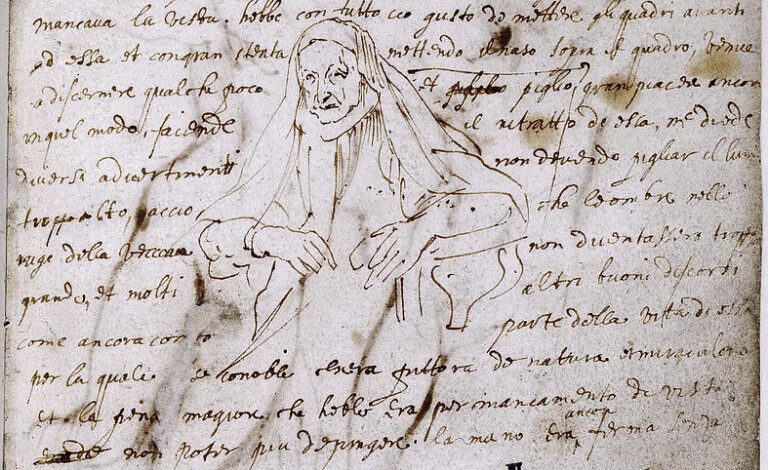 mancava la vista. hebbe con tutto cio gusto de mettere gli quadri avanti
ad essa et con gran stenta mettendo il naso sopra il quadro, venne
a discernere qualche poco et piglio gran piacere ancora
in quel modo. facendo il ritratto de essa, me diede
diversi advertimenti non devendo pigliar il lume
troppo alto, accio che le ombre nelle
ruge della vecciaia non diventassero troppo
grande, et molti altri buoni discorsi
come ancora conto parte della vita di essa
per la quale se conobbe chera pittora de natura et miraculosa
et la pena magiore che hebbe era per mancamento di vista
non poter piu depingere. la mano era ancora ferma senza